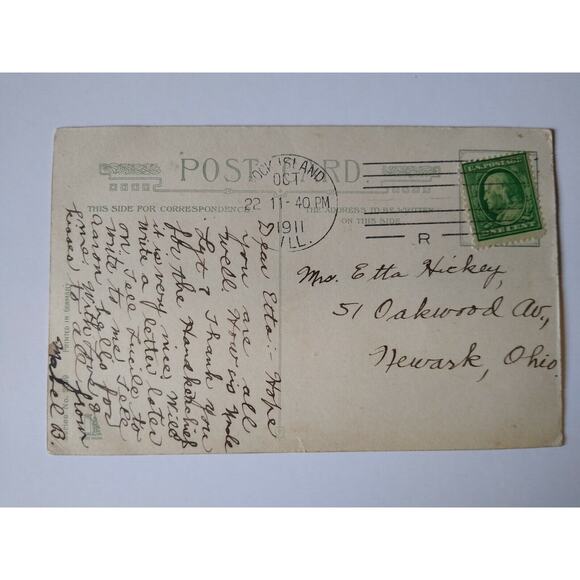 POST CARD
THIS SIDE FOR CORRESPONDENCE
THE ADDRESS TO BE WRITTEN
ON THIS SIDE
ISLAND
OCT
22 11-40 PM
1911
ILL.
R
U.S. POSTAGE
ONE CENT
Mrs. Etta Hickey,
51 Oakwood Av.,
Newark, Ohio.
Dear Etta:- Hope
you are all
well. How is Uncle
Thank you
for the Handkerchief
it is very nice, Will
write a letter later
on. Tell Lucile to
write to me. Tell
Aaron hello for
me. With love &
kisses to all from
Mabel B.
PRINTED IN GERMANY